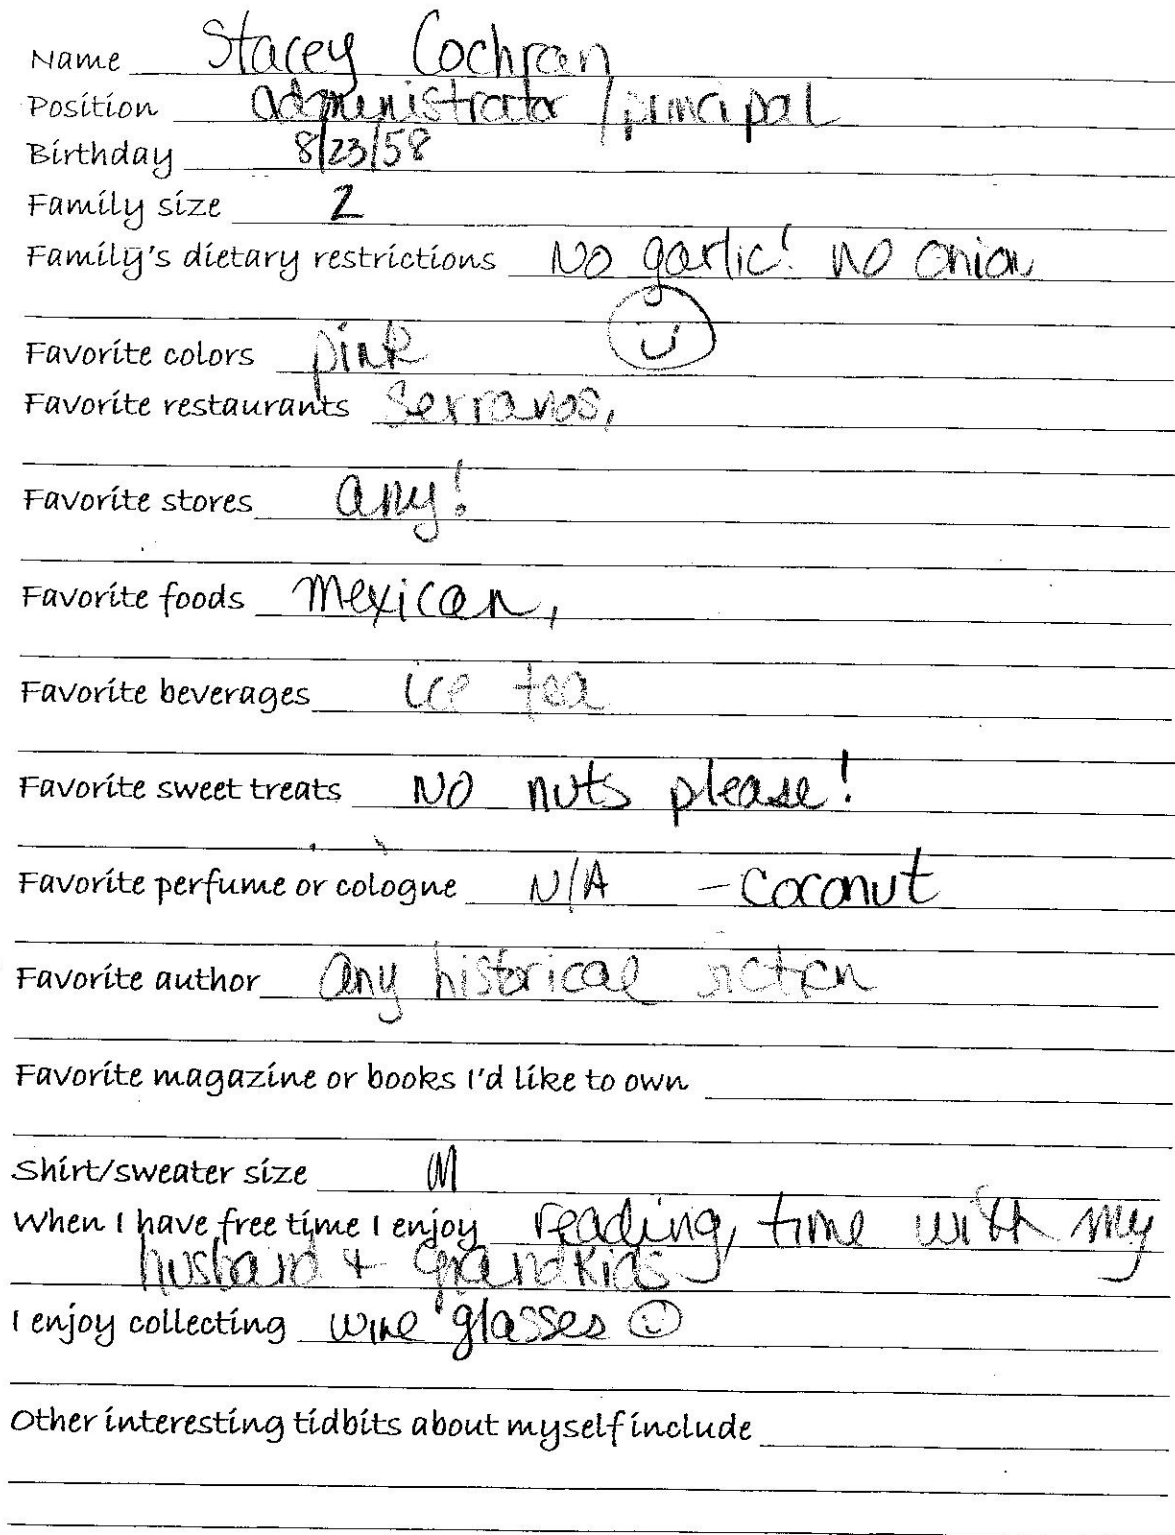 Name Stacey Cochran
Position administrator / principal
Birthday 8/23/58
Family size 2
Family's dietary restrictions No garlic! no onion
Favorite colors pink
Favorite restaurants Serranos,
Favorite stores any!
Favorite foods Mexican,
Favorite beverages ice tea
Favorite sweet treats NO nuts please!
Favorite perfume or cologne N/A - coconut
Favorite author any historical fiction
Favorite magazine or books I'd like to own
Shirt/sweater size M
When I have free time I enjoy reading, time with my
husband + grandkids
I enjoy collecting wine glasses
Other interesting tidbits about myself include